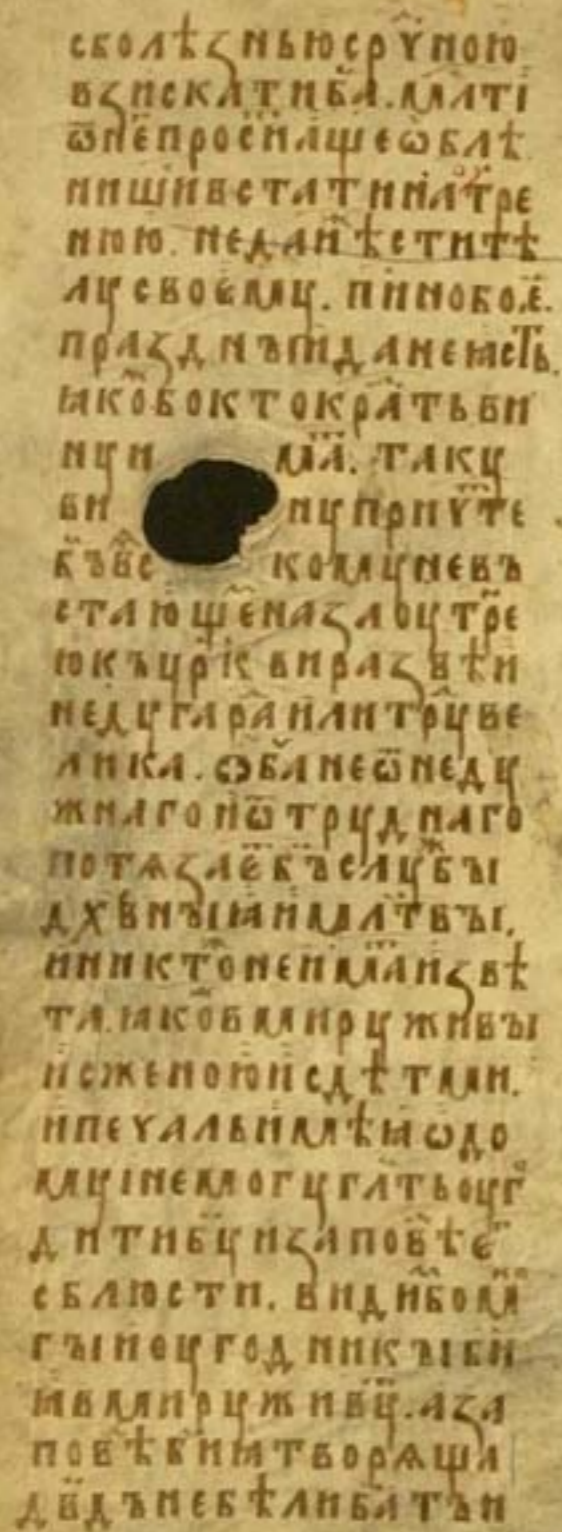 сболѣзньюсрⷣчною
взискатиба҃.млⷭті
ѿне҃просѧщеѡблѣ
нишивстатиназаѹтре
нюю.недаиⷤѣститѣ
лусвоему.пиⷭнобое҃.
праздныиданеꙗсть
ꙗкоⷤбоктократьби
нуи мⷭа҃.таку
би нуприч҃те
къ҃все комуневъ
стающеⷨназаоутре
юкъцр҃кⷡиразвѣи
недугаради҃литруⷣве
лика.ѡба҃неѿнеду
жнагоиѿтруднаго
потѧзаеⷮбъ҃слуⷤбы
дх҃вныꙗимлт҃вы.
ииктоⷤнеимаⷨизвѣ
та.ꙗковⷤмируживы
исженоюисдѣтми.
ипечальимѣꙗѡдо
муінемогугл҃тьоуго
дитибу҃изаповѣеⷯ
сблюсти.видиⷨбомⷩ
гыиоугодникыби҃
ꙗвмируживуⷳ.аза
повѣⷣби҃ꙗтворѧща
дв҃дънебѣлибат҃ъи